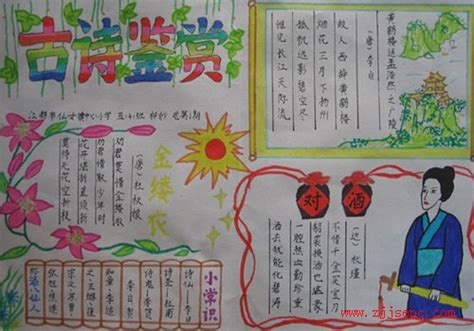 古诗鉴赏
江都市仙女镇中心小学
黄鹤楼送孟浩然之广陵
（唐）李白
故人西辞黄鹤楼
烟花三月下扬州
孤帆远影碧空尽
唯见长江天际流
金缕衣
（唐）杜秋娘
劝君莫惜金缕衣
劝君惜取少年时
花开堪折直须折
莫待无花空折枝
对酒
（近）秋瑾
不惜千金买宝刀
貂裘换酒也堪豪
一腔热血勤珍重
洒去犹能化碧涛
小常识
诗圣—杜甫
诗鬼—李贺